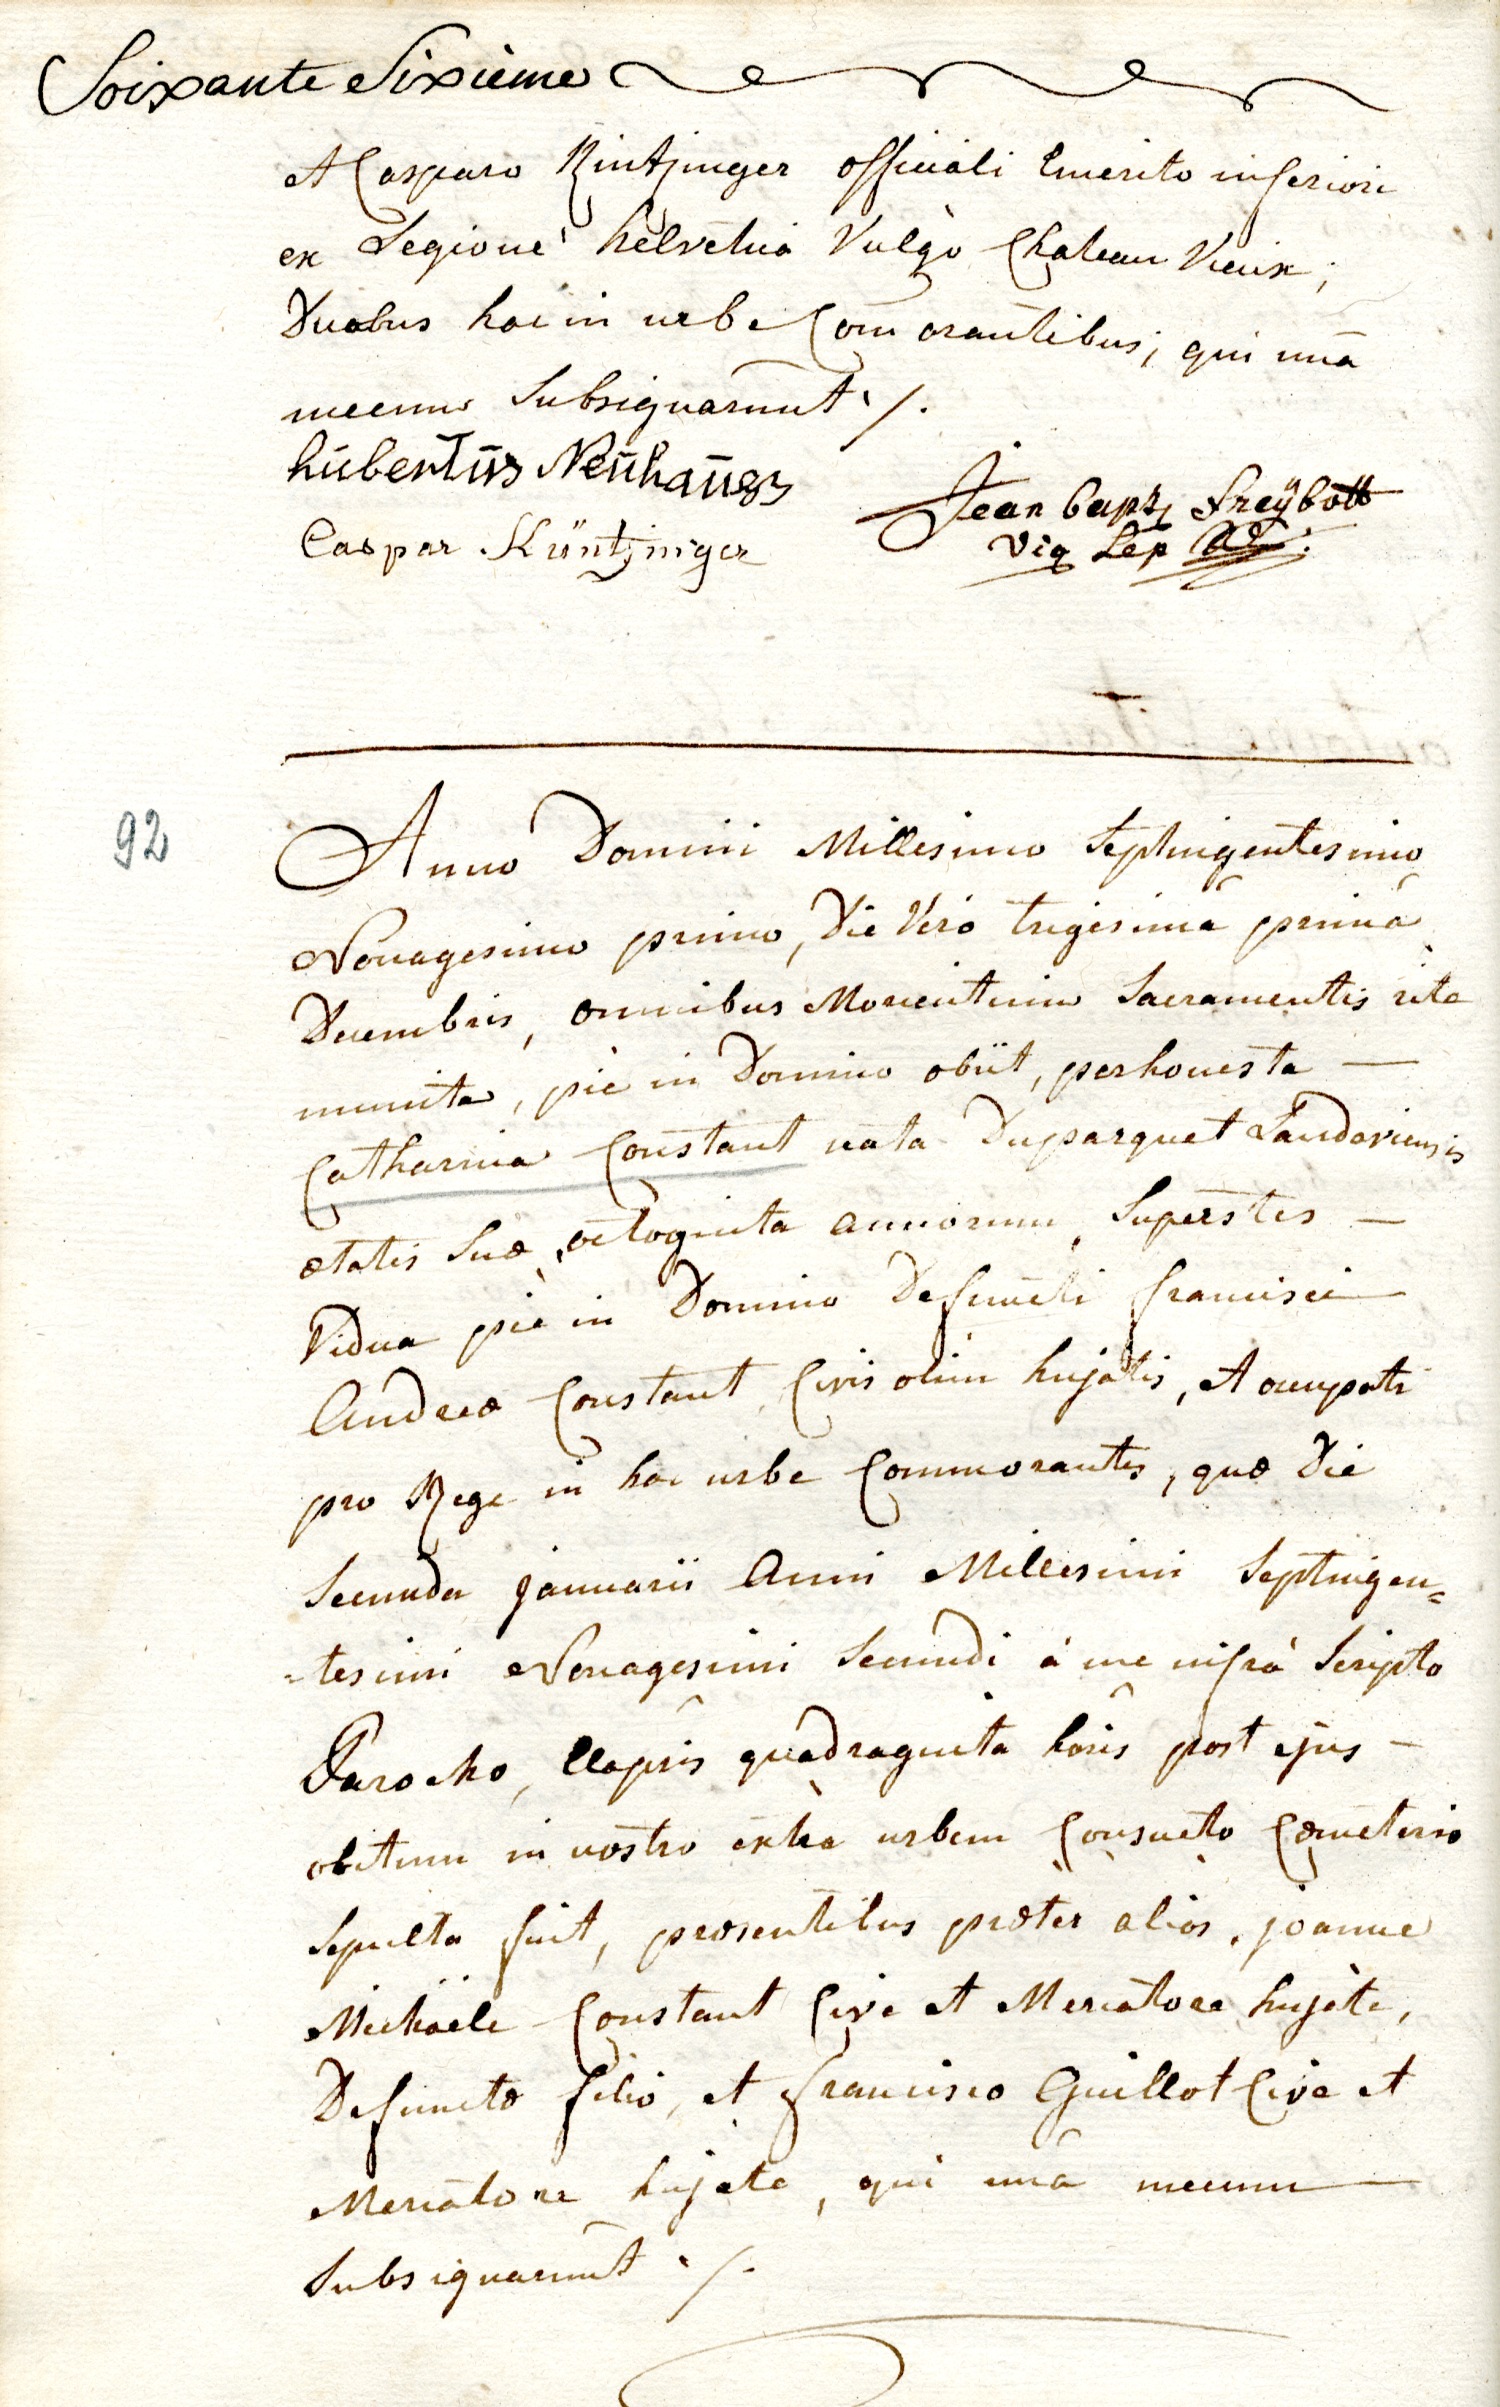 Soixante Sixieme
et Casparo Kintzinger officiali Emerito inferiori
ex Legione helvetica Vulgò Chateau Vieux;
Duobus hac in urbe Com̄orantibus; qui unâ
mecum Subsignarunt ./.
hübertüs Neühaüss
Caspar Küntzinger
Jean bapt Freÿbott
92
Anno Domini Millesimo Septingentesimo
Nonagesimo primo, Die Verò trigesimâ primâ
Decembris, omnibus Morientium Sacramentis rite
munita, piè in Domino obiit, perhonesta —
Catharina Constant nata Duparquet Landaviensis
ætatis Suæ octoginta annorum, Superstes —
Vidua piè in Domino Defuncti francisci —
Andreæ Constant, Civis olim hujatis, et occupati
pro Rege in hac urbe Commorantis, quæ Die
Secunda januarii Anni Millesimi Septingen=
=tesimi Nonagesimi Secundi à me infrà Scripto
Parocho, Elapsis quadraginta horis post ejus —
obitum in nostro extra urbem Consueto Cœmeterio
Sepulta fuit, præsentibus præter alios, joanne
Michaële Constant Cive et Mercatore hujate,
Defunctæ filio, et francisco Guillot Cive et
Mercatore hujate, qui unâ mecum —
Subsignarunt ./.